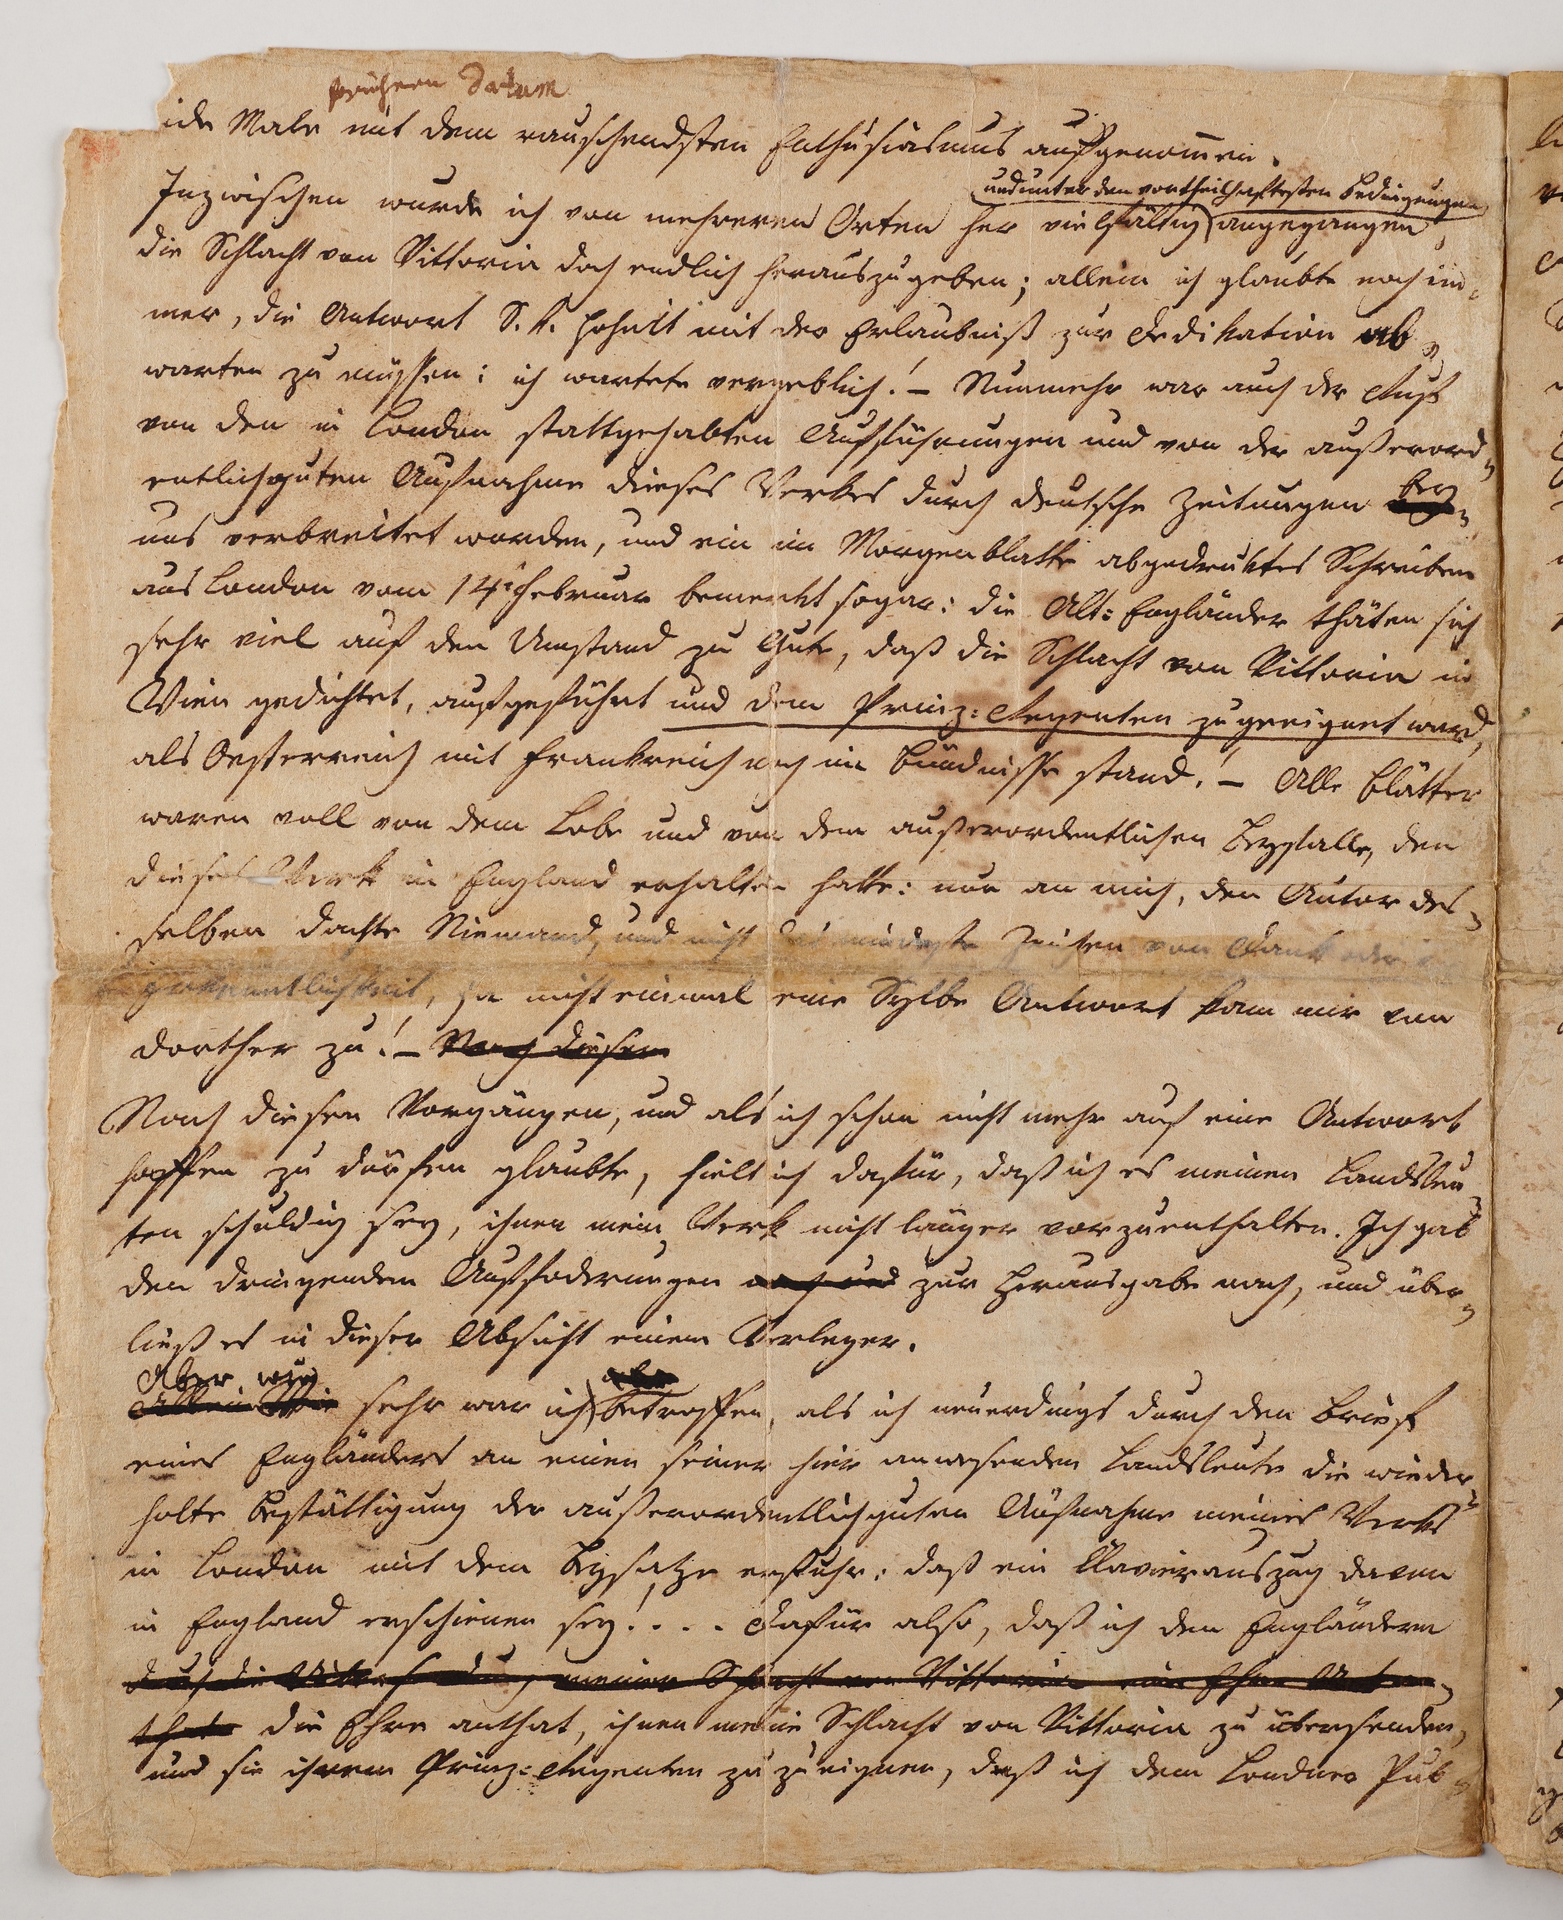 frühern Datum
ide Male mit dem rauschendsten Enthusiasmus aufgenommen.
und unter den vortheilhaftesten Bedingungen
Inzwischen wurde ich von mehreren Orten her vielfältig angegangen,
die Schlacht von Vittoria doch endlich herauszugeben; allein ich glaubte noch im-
mer, die Antwort S. K. Hoheit mit der Erlaubniß zur Dedikation ab-
warten zu müssen: ich wartete vergeblich! – Nunmehr war auch der Ruf
von den in London stattgehabten Aufführungen und von der außerord-
entlich guten Aufnahme dieses Werkes durch deutsche Zeitungen bey
uns verbreitet worden, und ein im Morgenblatte abgedrucktes Schreiben
aus London vom 14. Februar bemerkt sogar: die Alt-Engländer thäten sich
sehr viel auf den Umstand zu Gute, daß die Schlacht von Vittoria in
Wien gedichtet, aufgeführt und dem Prinz-Regenten zugeeignet ward,
als Oesterreich mit Frankreich noch im Bündnisse stand! – Alle Blätter
waren voll von dem Lobe und von dem außerordentlichen Beyfalle, den
dieses Werk in England erhalten hatte: nur an mich, den Autor des-
selben dachte Niemand, und nicht das mindeste Zeichen von Dank oder
Erkenntlichkeit, ja nicht einmal eine Sylbe Antwort kam mir von
dorther zu! – Nach diesem
Nach diesen Vorgängen, und als ich schon nicht mehr auf eine Antwort
hoffen zu dürfen glaubte, hielt ich dafür, daß ich es meinen Landsleu-
ten schuldig sey, ihnen mein Werk nicht länger vorzuenthalten. Ich gab
den dringenden Auffoderungen nach und zur Herausgabe nach, und über-
ließ es in dieser Absicht einem Verleger.
Aber wie aber
Allein Wie sehr war ich betroffen, als ich neuerdings durch den Brief
eines Engländers an einen seiner hier anwesenden Landsleute die wieder-
holte Bestättigung der außerordentlich guten Aufnahme meines Werks
in London mit dem Beysatze erfuhr: daß ein Klavierauszug davon
in England erschienen sey! . . . . Dafür also, daß ich den Engländern
durch die Übersendung meiner Schlacht von Vittoria eine Ehre
die Ehre anthat, ihnen meine Schlacht von Vittoria zu übersenden,
und sie ihrem Prinz-Regenten zuzueignen, daß ich dem Londner Pub-